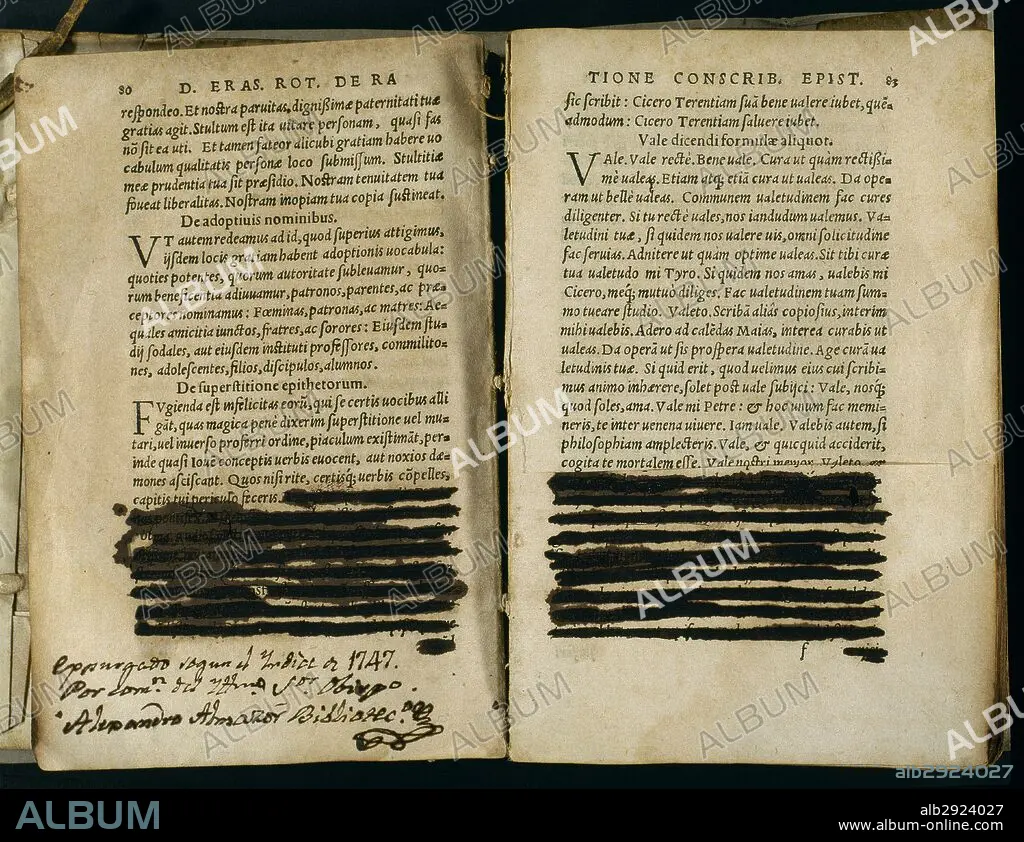 80 D. ERAS. ROT. DE RA
respondeo. Et nostra paruitas, dignißimæ paternitati tuæ
gratias agit. Stultum est ita uitare personam, quasi fas
nõ sit ea uti. Et tamen fateor alicubi gratiam habere uo
cabulum qualitatis personæ loco submissum. Stultitiæ
meæ prudentia tua sit præsidio. Nostram tenuitatem tua
foueat liberalitas. Nostram inopiam tua copia sustineat.
De adoptiuis nominibus.
VT autem redeamus ad id, quod superius attigimus,
ijsdem locis gratiam habent adoptionis uocabula:
quoties potentes, quorum autoritate subleuamur, quo=
rum beneficentia adiuuamur, patronos, parentes, ac præ=
ceptores nominamus: Fœminas, patronas, ac matres: Ae=
quales amicitia iunctos, fratres, ac sorores: Eiusdem stu=
dij sodales, aut eiusdem instituti professores, commilito=
nes, adolescentes, filios, discipulos, alumnos.
De superstitione epithetorum.
FVgienda est infelicitas eorũ, qui se certis uocibus alli
gãt, quas magica penè dixerim superstitione uel mu=
tari, uel inuerso proferri ordine, piaculum existimãt, per=
inde quasi Iouẽ conceptis uerbis euocent, aut noxios dæ=
mones asciscant. Quos nisi rite, certisq; uerbis cõpelles,
capitis tui periculo feceris.
Expurgado segun el Indice de 1747.
Por Comon. del Illmo Sor Obispo.
Alexandro Almazor Bibliotec.o
TIONE CONSCRIB. EPIST. 83
sic scribit: Cicero Terentiam suã bene ualere iubet, quẽ=
admodum: Cicero Terentiam saluere iubet.
Vale dicendi formulæ aliquot.
VAle. Vale rectè. Bene uale. Cura ut quam rectißi=
mè ualeas. Etiam atq; etiã cura ut ualeas. Da ope=
ram ut bellè ualeas. Communem ualetudinem fac cures
diligenter. Si tu rectè uales, nos iandudum ualemus. Va=
letudini tuæ, si quidem nos ualere uis, omni solicitudine
fac seruias. Adnitere ut quàm optime ualeas. Sit tibi curæ
tua ualetudo mi Tyro. Si quidem nos amas, ualebis mi
Cicero, meq; mutuò diliges. Fac ualetudinem tuam sum=
mo tueare studio. Valeto. Scribã aliâs copiosius, interim
mihi ualebis. Adero ad calẽdas Maias, interea curabis ut
ualeas. Da operã ut sis prospera ualetudine. Age curã ua
letudinis tuæ. Si quid erit, quod uelimus eius cui scribi=
mus animo inhærere, solet post uale subijci: Vale, nosq;
quod soles, ama. Vale mi Petre: & hoc unum fac memi=
neris, te inter uenena uiuere. Iam uale. Valebis autem, si
philosophiam amplecteris. Vale, & quicquid acciderit,
cogita te mortalem esse. Vale nostri memor. Valeto
f
ALBUM
alb2924027
ALBUM
alb2924027
www.album-online.com